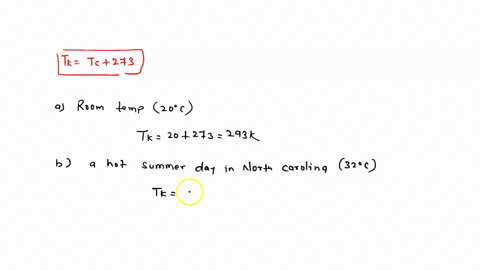 Tk = Tc + 273
a) Room temp (20°c)
Tk = 20 + 273 = 293k
b) a hot summer day in North caroling (32°c)
Tk =